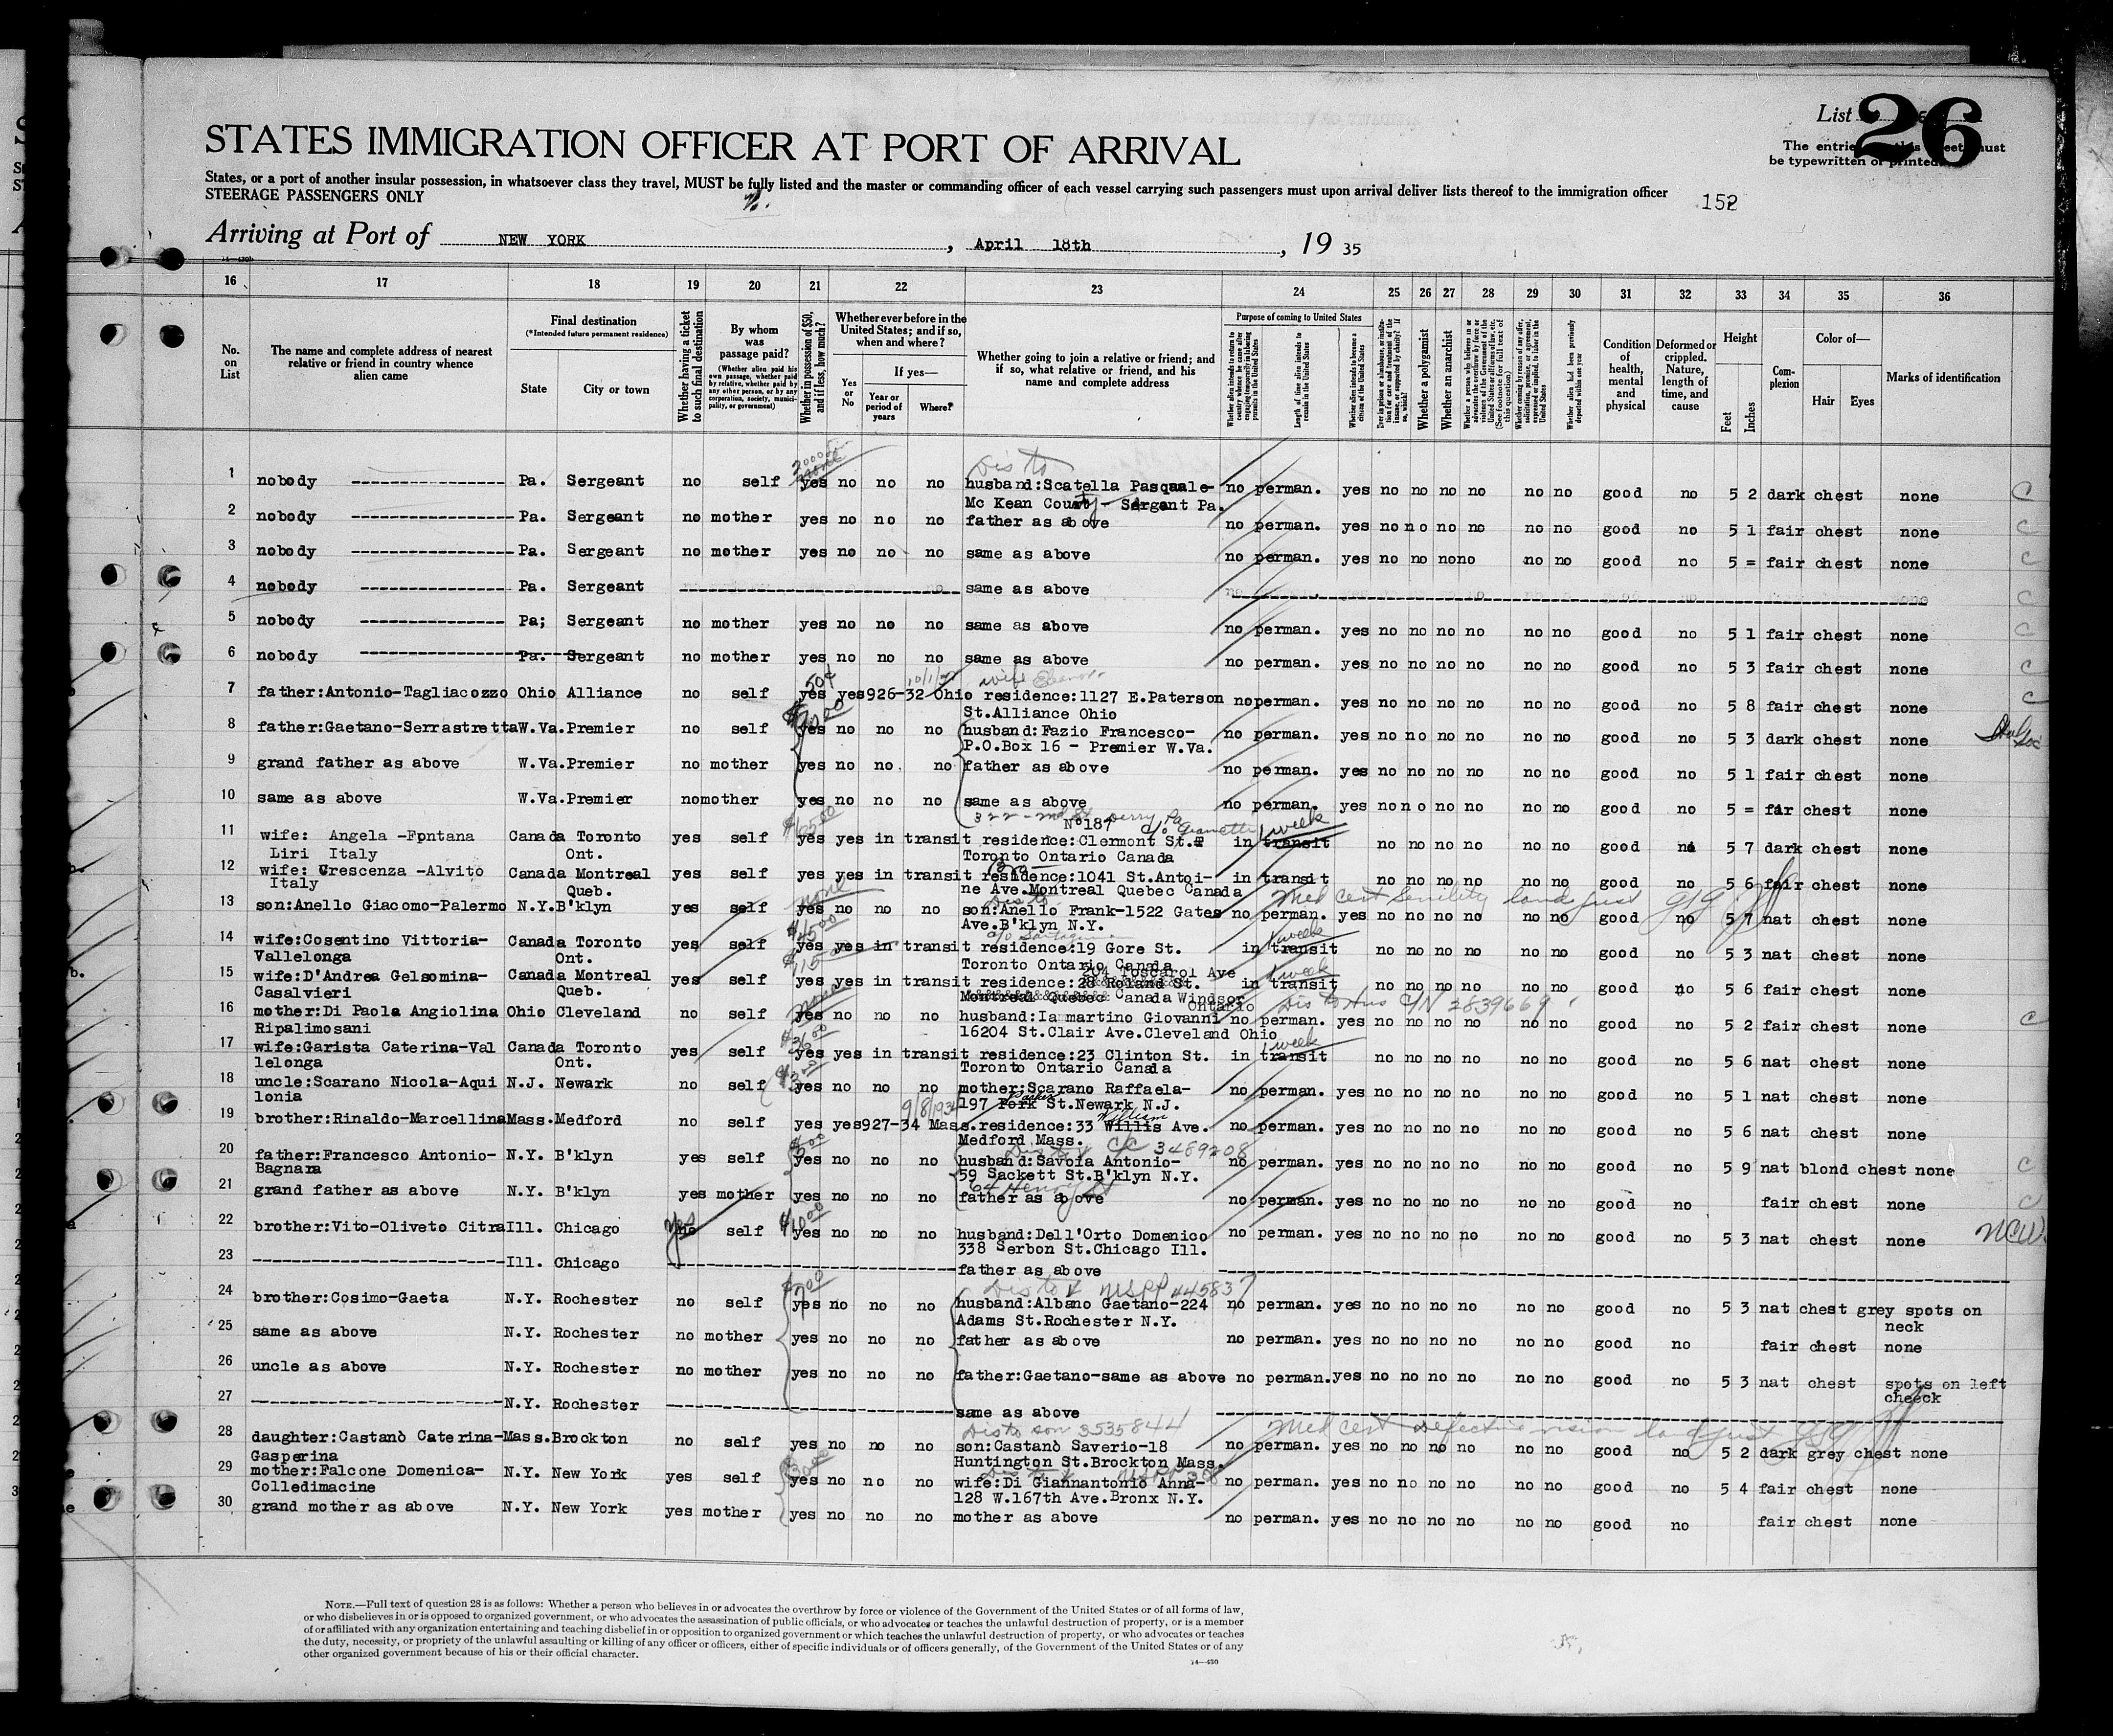 List
26
The entries this sheet must
be typewritten or printed.
STATES IMMIGRATION OFFICER AT PORT OF ARRIVAL
States, or a port of another insular possession, in whatsoever class they travel, MUST be fully listed and the master or commanding officer of each vessel carrying such passengers must upon arrival deliver lists thereof to the immigration officer
STEERAGE PASSENGERS ONLY
152
Arriving at Port of NEW YORK , April 18th , 19 35
16 17 18 19 20 21 22 23 24 25 26 27 28 29 30 31 32 33 34 35 36
No. on List
The name and complete address of nearest relative or friend in country whence alien came
Final destination
(*Intended future permanent residence)
State
City or town
Whether having a ticket to such final destination
By whom was passage paid?
(Whether alien paid his own passage, whether paid by relative, whether paid by any other person, or by any corporation, society, municipality, or government)
Whether in possession of $50, and if less, how much?
Whether ever before in the United States; and if so, when and where?
Yes or No
If yes—
Year or period of years
Where?
Whether going to join a relative or friend; and if so, what relative or friend, and his name and complete address
Purpose of coming to United States
Length of time alien intends to remain in the United States
Whether alien intends to become a citizen of the United States
Whether a polygamist
Whether an anarchist
Condition of health, mental and physical
Deformed or crippled. Nature, length of time, and cause
Height
Feet
Inches
Complexion
Color of—
Hair
Eyes
Marks of identification
1 nobody ---------------- Pa. Sergeant no self yes no no no husband:Scatella Pasquale- no perman. yes no no no no no no good no 5 2 dark chest none C
Dis to
Mc Kean County - Sergent Pa.
2 nobody ---------------- Pa. Sergeant no mother yes no no no father as above no perman. yes no no no no no no good no 5 1 fair chest none C
3 nobody ---------------- Pa. Sergeant no mother yes no no no same as above no perman. yes no no no no no no good no 5 = fair chest none C
4 nobody ---------------- Pa. Sergeant ---------------- same as above ---------------- C
5 nobody ---------------- Pa; Sergeant no mother yes no no no same as above no perman. yes no no no no no no good no 5 1 fair chest none C
6 nobody ---------------- Pa. Sergeant no mother yes no no no same as above no perman. yes no no no no no no good no 5 3 fair chest none C
7 father:Antonio-Tagliacozzo Ohio Alliance no self yes yes 926-32 Ohio residence:1127 E.Paterson no perman. yes no no no no no no good no 5 8 fair chest none C
St.Alliance Ohio
8 father:Gaetano-Serrastretta W.Va. Premier no self yes no no no husband:Fazio Francesco- no perman. yes no no no no no no good no 5 3 dark chest none
P.O.Box 16 - Premier W.Va.
9 grand father as above W.Va. Premier no mother yes no no no father as above no perman. yes no no no no no no good no 5 1 fair chest none
10 same as above W.Va. Premier no mother yes no no no same as above no perman. yes no no no no no no good no 5 = fair chest none
Nº187
1 week
11 wife: Angela -Fontana Canada Toronto yes self yes yes in transit residence:Clermont St. in transit no no no no no no good no 5 7 dark chest none
Liri Italy Ont. Toronto Ontario Canada
12 wife: Crescenza -Alvito Canada Montreal yes self yes yes in transit residence:1041 St.Antoi- in transit no no no no no no good no 5 6 fair chest none
Italy Queb. ne Ave.Montreal Quebec Canada
none Dis to Med cert Senility land just
13 son:Anello Giacomo-Palermo N.Y. B'klyn yes self yes no no no son:Anello Frank-1522 Gates no perman. yes no no no no no no good no 5 7 nat chest none
Ave.B'klyn N.Y.
$45.00 1 week
14 wife:Cosentino Vittoria- Canada Toronto yes self yes yes in transit residence:19 Gore St. in transit no no no no no no good no 5 3 nat chest none
Vallelonga Ont. Toronto Ontario Canada
204 Toscarol Ave 1 week
15 wife:D'Andrea Gelsomina- Canada Montreal yes self yes yes in transit residence:28 Roland St. in transit no no no no no no good no 5 6 fair chest none
Casalvieri Queb. Montreal Quebec Canada Windsor
Ontario
Dis to Hus C/N 2839669
16 mother:Di Paola Angiolina Ohio Cleveland no self yes no no no husband:Ia martino Giovanni no perman. yes no no no no no no good no 5 2 fair chest none C
Ripalimosani 16204 St.Clair Ave.Cleveland Ohio
1 week
17 wife:Garista Caterina-Val Canada Toronto yes self yes yes in transit residence:23 Clinton St. in transit no no no no no no good no 5 6 nat chest none
lelonga Ont. Toronto Ontario Canada
18 uncle:Scarano Nicola-Aqui N.J. Newark no self yes no no no mother:Scarano Raffaela- no perman. yes no no no no no no good no 5 1 nat chest none
lonia 197 Pork St.Newark N.J.
Parker
9/8/1934 William
19 brother:Rinaldo-Marcellina Mass. Medford no self yes yes 927-34 Mass. residence:33 Willis Ave. no perman. yes no no no no no no good no 5 6 nat chest none
Medford Mass.
C/C 3489208
20 father:Francesco Antonio- N.Y. B'klyn yes self yes no no no husband:Savoia Antonio- no perman. yes no no no no no no good no 5 9 nat blond chest none C
Bagnara 59 Sackett St.B'klyn N.Y.
64 Henry St
21 grand father as above N.Y. B'klyn yes mother yes no no no father as above no perman. yes no no no no no no good no fair chest none C
yes $10.00
22 brother:Vito-Oliveto Citra Ill. Chicago no self yes no no no husband:Dell'Orto Domenico no perman. yes no no no no no no good no 5 3 nat chest none NCW
338 Serbon St.Chicago Ill.
23 ---------------- Ill. Chicago ---------------- father as above ----------------
Dis to
24 brother:Cosimo-Gaeta N.Y. Rochester no self yes no no no husband:Albano Gaetano-224 no perman. yes no no no no no no good no 5 3 nat chest grey spots on
neck
Adams St.Rochester N.Y.
25 same as above N.Y. Rochester no mother yes no no no father as above no perman. yes no no no no no no good no fair chest none
26 uncle as above N.Y. Rochester no mother yes no no no father:Gaetano-same as above no perman. yes no no no no no no good no 5 3 nat chest spots on left
cheeck
27 ---------------- N.Y. Rochester ---------------- same as above ----------------
Dis to son 3535844 Med cert defective vision land just
28 daughter:Castanò Caterina- Mass. Brockton no self yes no no no son:Castanò Saverio-18 no perman. yes no no no no no no good no 5 2 dark grey chest none
Gasperina Huntington St.Brockton Mass.
29 mother:Falcone Domenica- N.Y. New York yes self yes no no no wife:Di Giannantonio Anna- no perman. yes no no no no no no good no 5 4 fair chest none
Colledimacine 128 W.167th Ave.Bronx N.Y.
30 grand mother as above N.Y. New York yes mother yes no no no mother as above no perman. yes no no no no no no good no fair chest none
NOTE.—Full text of question 28 is as follows: Whether a person who believes in or advocates the overthrow by force or violence of the Government of the United States or of all forms of law,
or who disbelieves in or is opposed to organized government, or who advocates the assassination of public officials, or who advocates or teaches the unlawful destruction of property, or is a member
of or affiliated with any organization entertaining and teaching disbelief in or opposition to organized government or which teaches the unlawful destruction of property, or who advocates or teaches
the duty, necessity, or propriety of the unlawful assaulting or killing of any officer or officers, either of specific individuals or of officers generally, of the Government of the United States or of any
other organized government because of his or their official character.
14—430